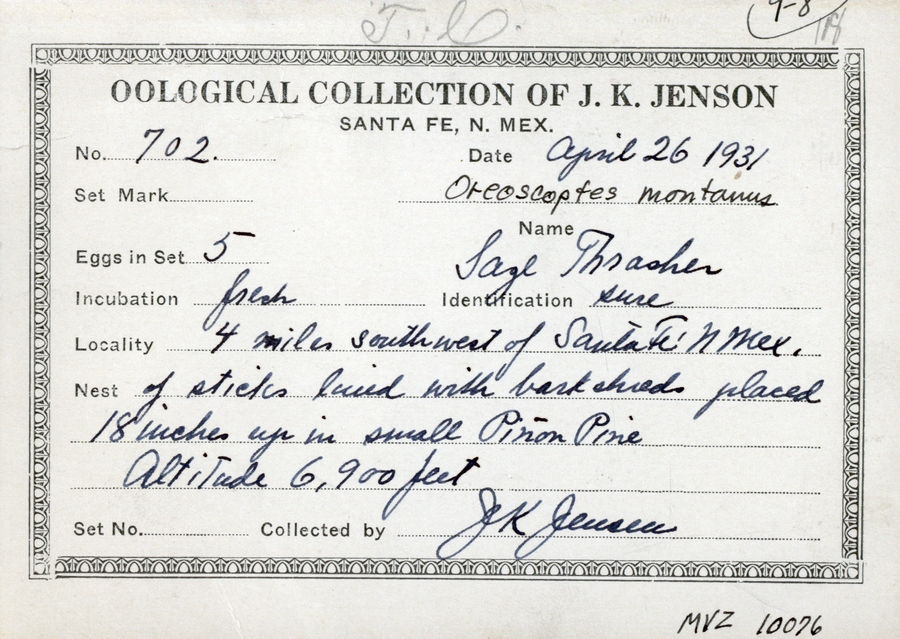 T. C.
9-8
OOLOGICAL COLLECTION OF J. K. JENSON
SANTA FE, N. MEX.
No. 702. Date April 26 1931
Set Mark Oreoscoptes montanus
Name
Eggs in Set 5 Sage Thrasher
Incubation fresh Identification sure
Locality 4 miles southwest of Santa Fe N Mex.
Nest of sticks lined with bark shreds placed
18 inches up in small Piñon Pine
Altitude 6,900 feet
Set No. Collected by J K Jensen
MVZ 10076